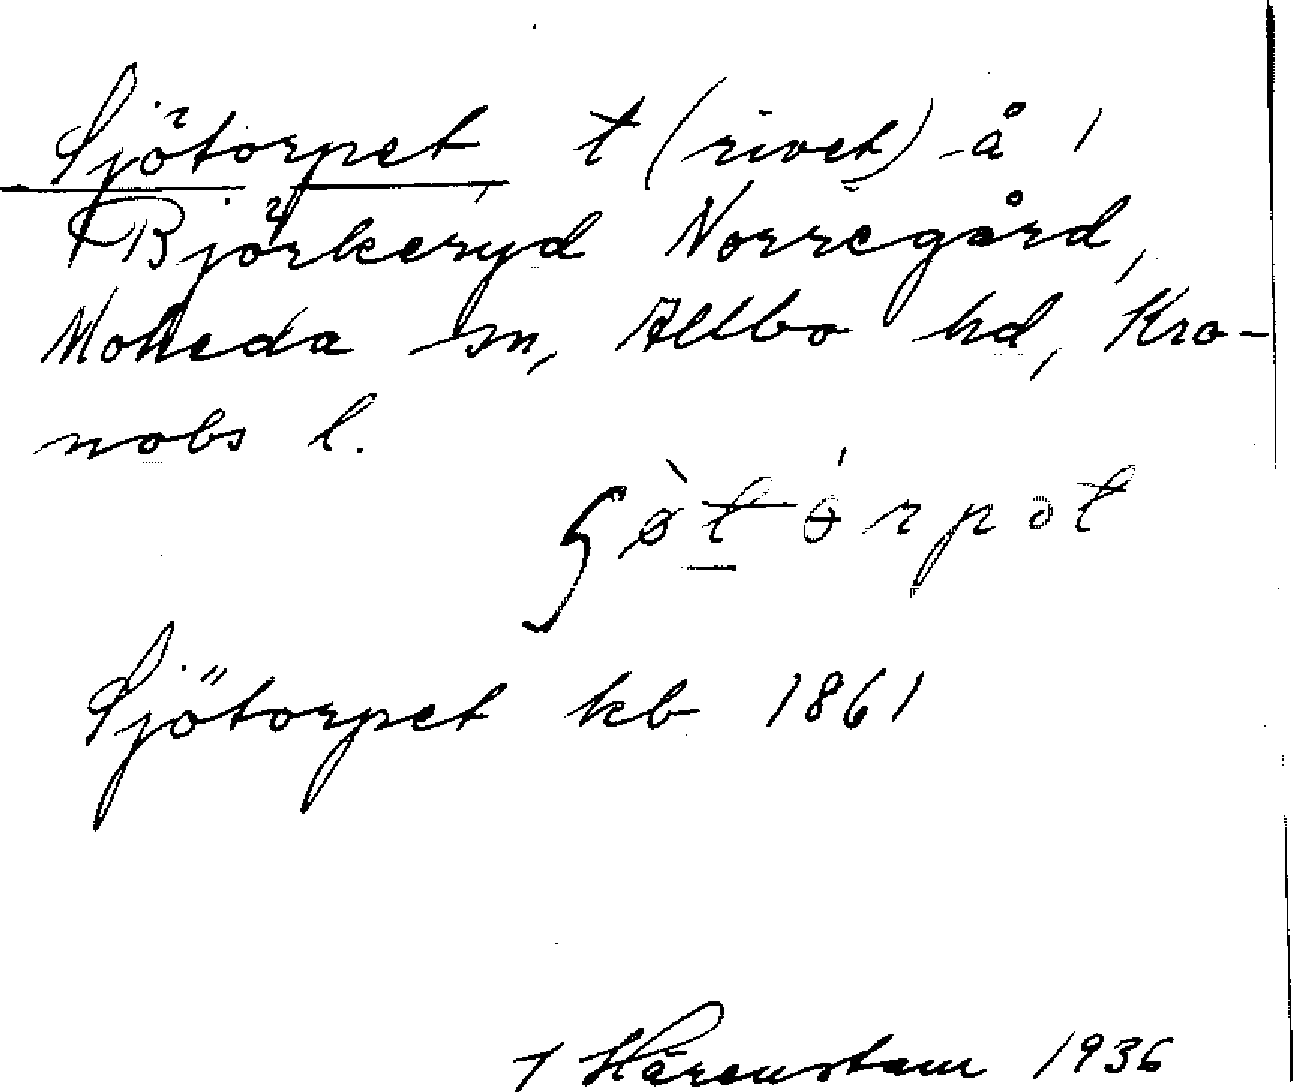 Sjötorpet t (rivet) å
Björkeryd Norregård,
Moheda sn, Allbo hd, Kro-
nobs l.
Sjötorpet kb 1861
Härenstam 1936